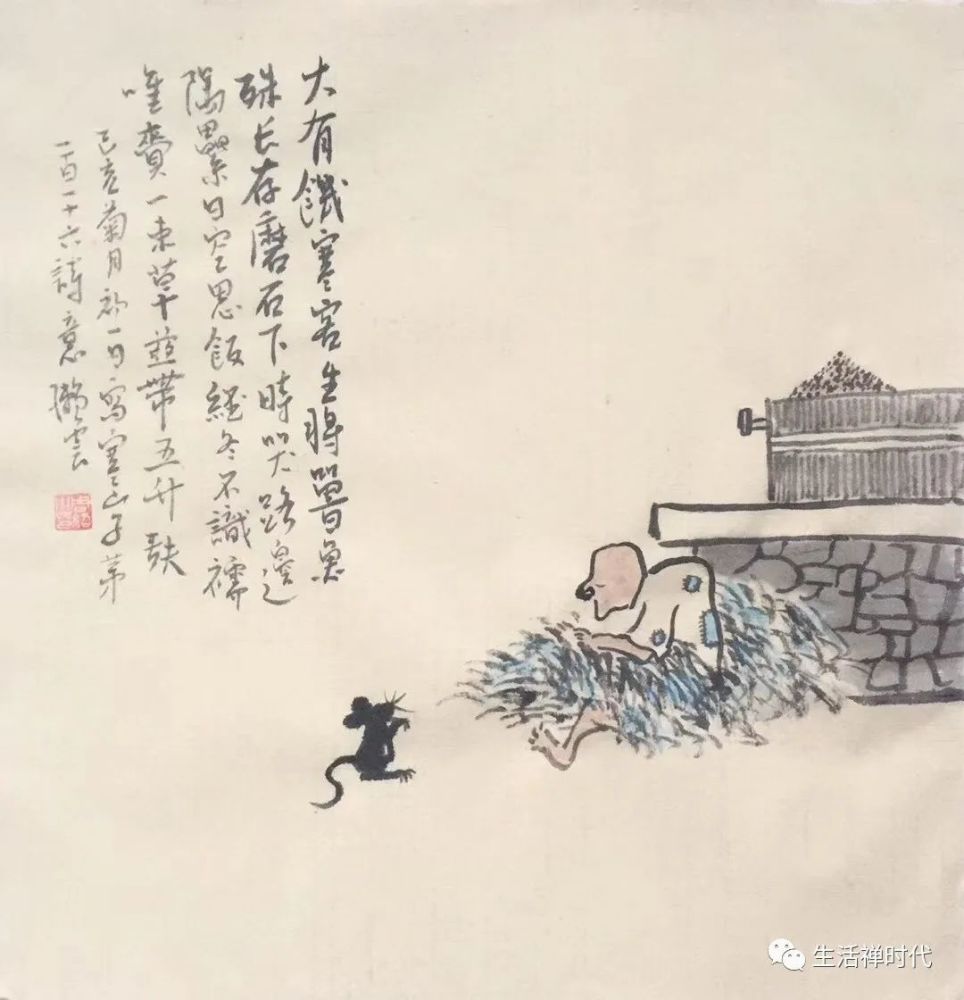 大有饑寒客生將獸魚
殊长存磨石下時哭路邊
隅纍日空思飯經冬不識襦
唯賫一束草並帶五升麩
己亥菊月初一日寫寒山子第
一百一十六詩意 懶雲
生活禅时代